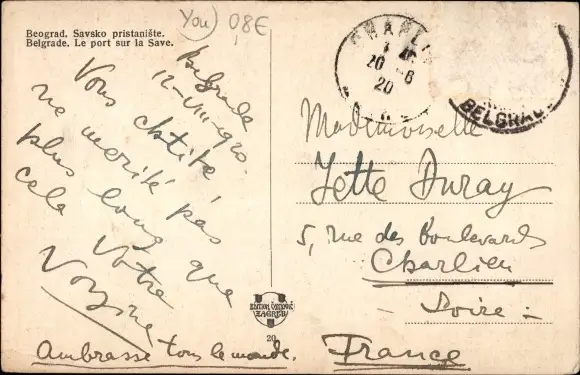 You)
0,8€
Beograd. Savsko pristanište.
Belgrade. Le port sur la Save.
Belgrade
12-VIII-920.
Vous
ne merité pas
plus long que
cela Votre
Ambrasse tous le monde.
CHARLIE
20 -8
20
BELGRADE
Mademoiselle
Jette Duray
5, rue des Boulevards
Charlieu
- Loire -
France
EDITION
ZAGREB
20